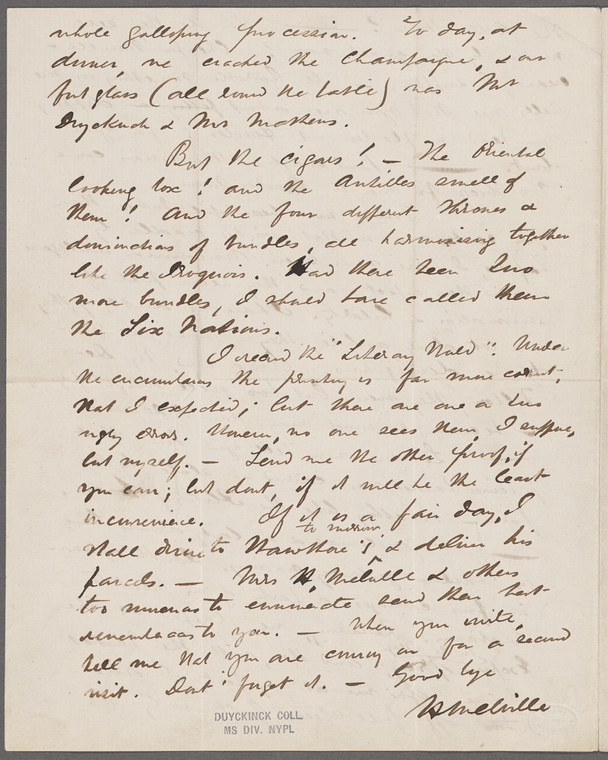 whole galloping procession. To day, at
dinner, we cracked the Champagne, & our
first glass (all round the table) was Mr
Duyckinck & Mr Mathews.
But the cigars! — The Oriental
looking box! and the Antilles smell of
them! And the four different thrones &
dominations of bundles, all harmonizing together
like the Iroquois. Had there been two
more bundles, I should have called them
the Six Nations.
I received the "Literary World". Under
the circumstances the printing is far more correct,
than I expected; but there are one or two
ugly errors. However, no one sees them, I suppose,
but myself. — Send me the other proof, if
you can; but dont, if it will be the least
inconvenience. If it is a fair day, I
to morrow
shall drive to Hawthorne's, & deliver his
parcels. — Mrs H. Melville & others
too numerous to enumerate send their best
remembrances to you. — When you write,
tell me that you are coming on for a second
visit. Dont forget it. — Good bye
H Melville
DUYCKINCK COLL.
MS DIV. NYPL